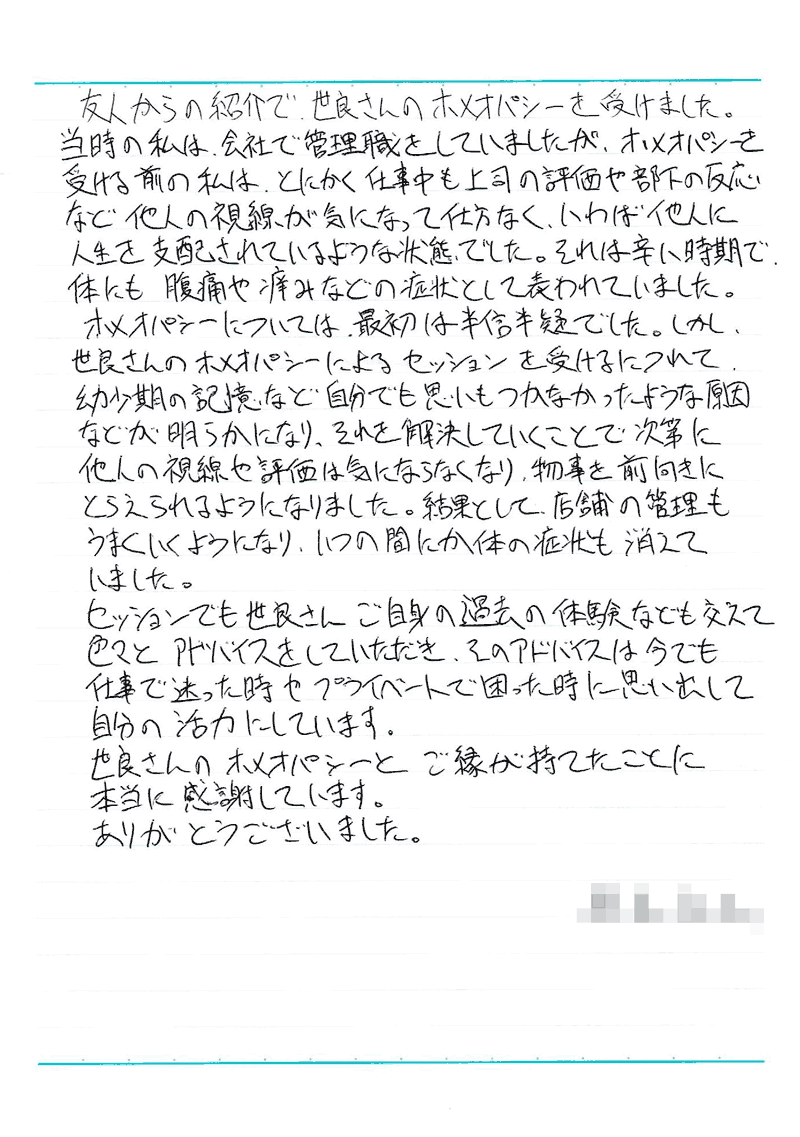 友人からの紹介で、世良さんのホメオパシーを受けました。
当時の私は、会社で管理職をしていましたが、ホメオパシーを
受ける前の私は、とにかく仕事中も上司の評価や部下の反応
など他人の視線が気になって仕方なく、いわば他人に
人生を支配されているような状態でした。それは辛い時期で、
体にも腹痛や痒みなどの症状として表われていました。
ホメオパシーについては、最初は半信半疑でした。しかし、
世良さんのホメオパシーによるセッションを受けるにつれて、
幼少期の記憶など自分でも思いもつかなかったような原因
などが明らかになり、それを解決していくことで次第に
他人の視線や評価は気にならなくなり、物事を前向きに
とらえられるようになりました。結果として、店舗の管理も
うまくいくようになり、いつの間にか体の症状も消えて
いました。
セッションでも世良さんご自身の過去の体験なども交えて
色々とアドバイスをしていただき、そのアドバイスは今でも
仕事で迷った時やプライベートで困った時に思い出して
自分の活力にしています。
世良さんのホメオパシーとご縁が持てたことに
本当に感謝しています。
ありがとうございました。